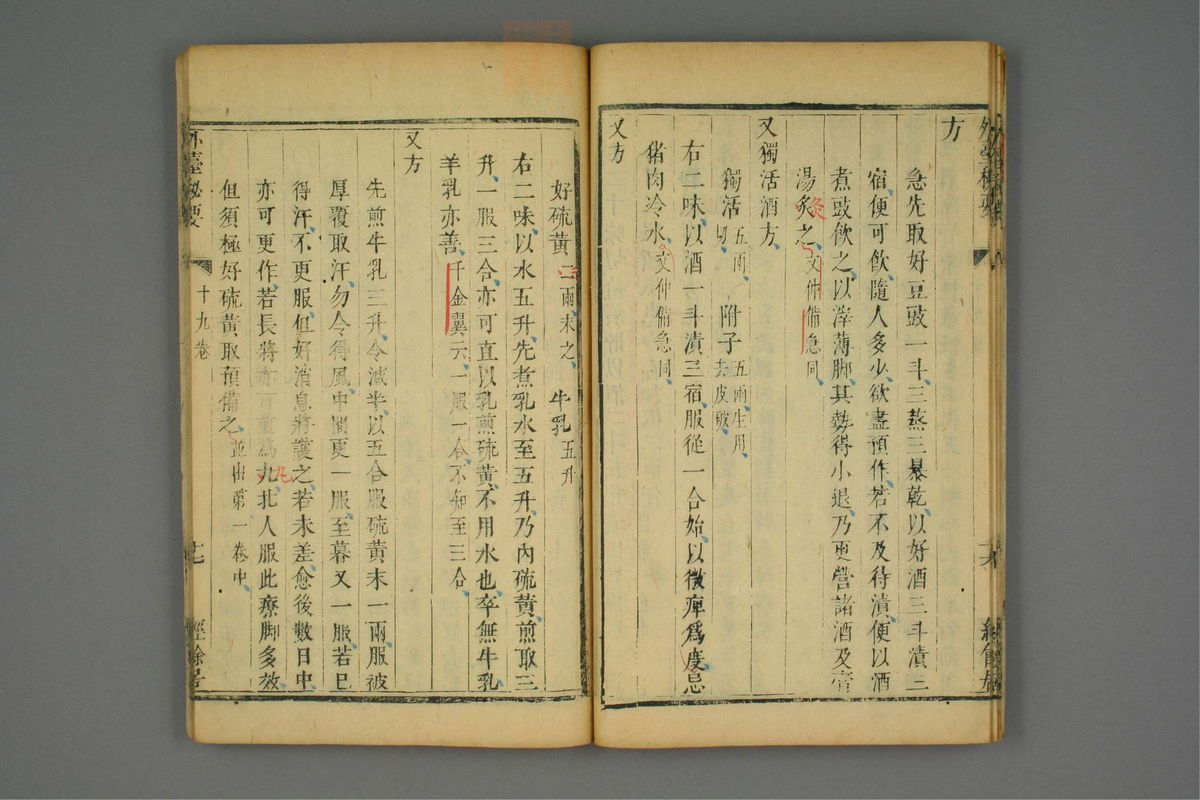 方
急先取好豆豉一斗三蒸三暴乾以好酒三斗漬三
宿便可飲隨人多少欲盡預作若不及待漬便以酒
煮豉飲之以滓薄脚其勢得小退乃更營諸酒及膏
湯炙之文仲備急同
灸
又獨活酒方
獨活五兩切附子五兩生用去皮破
右二味以酒一斗漬三宿服從一合始以微痺為度忌
猪肉冷水文仲備急同
又方
好硫黄二兩末之牛乳五升
右二味以水五升先煮乳水至五升乃内硫黄煎取三
升一服三合亦可直以乳煎硫黄不用水也卒無牛乳
羊乳亦善千金翼云一服一合不知至三合
又方
先煎牛乳三升令減半以五合服硫黄末一兩服被
厚覆取汗勿令得風中間更一服至暮又一服若已
得汗不更服但好消息將護之若未差愈後數日中
亦可更作若長將亦可煎為九北人服此療脚多效
丸
但須極好硫黄取預備之並出第一卷中
外臺秘要
十九卷
十七
經餘居